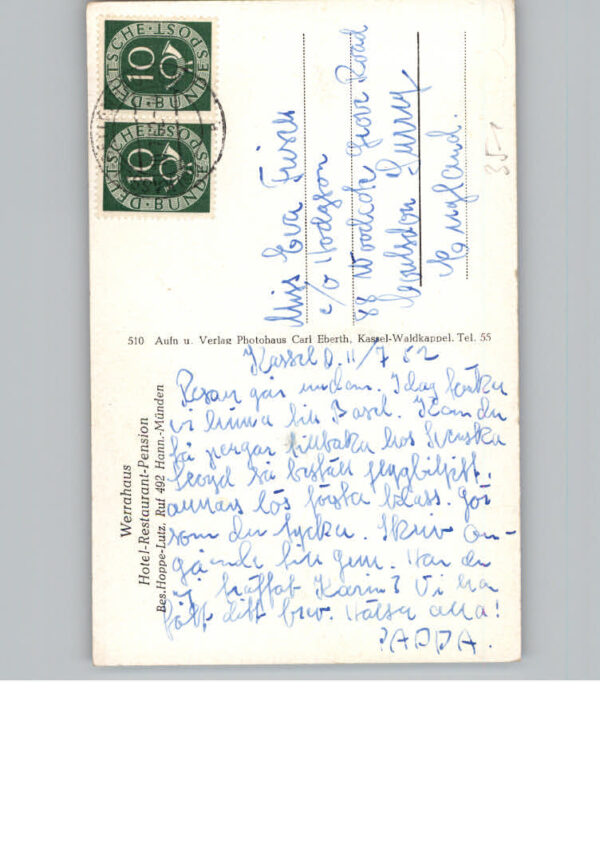 DEUTSCHE·POST·BUNDES
10
DEUTSCHE·POST·BUNDES
10
Miss Eva Frisch
c/o Hodgson
88 Woodside Grove Road
Coulsdon Surrey
England.
35-
510 Aufn u. Verlag Photohaus Carl Eberth, Kassel-Waldkappel. Tel. 55
Werrahaus
Hotel-Restaurant-Pension
Bes. Hoppe-Lutz. Ruf 492 Hann.-Münden
Kassel D. 11/7 52
Resan går undan. Idag tänka
vi hinna till Basel. Kan du
få pengar tillbaka hos Svenska
Lloyd så beställ flygbiljett.
annars lös första klass. Gör
som du tycker. Skriv an-
gående till
Har du
träffat Karin? Vi ha
fått ditt brev. Hälsa alla!
PAPPA.